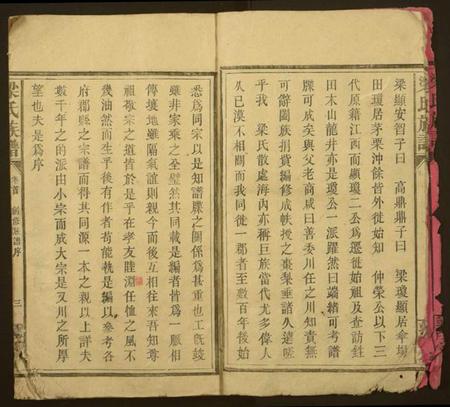 梁顯安智子曰　高鼎鼎子曰　梁瓊顯居傘塲
田瓊居茅栗沖餘皆外徙始知　仲榮公以下三
代原籍江西而顯瓊二公爲遷徙始祖及查訪鉎
田木山龍井亦是瓊公一派躍然曰端緒可考譜
牒可成矣與父老商咸曰善委川任之川知責無
可辭闔族捐資編修成帙授之棗梨垂諸久遠
乎我　梁氏散處海內亦稱巨族當代尤多偉人
久已漠不相關而我同徙一郡者至數百年後始
悉爲同宗以是知譜牒之關係爲甚重也工旣竣
雖非家乘之全璧然其同載是編者皆爲一脈相
傳壤地雖隔氣誼則親今而後互相往來吾知尊
祖敬宗之道皆於是乎在孝友睦婣任恤之風不
幾油然而生乎後有作者苟能執是編以參考各
府郡縣之宗譜而得其同源一本之親以上詳夫
數千年之的派由小宗而成大宗是又川之所厚
望也夫是爲序
梁氏族譜
卷首
創修族譜序
三